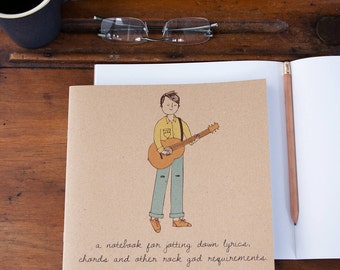 a notebook for jotting down lyrics,
chords and other rock god requirements.